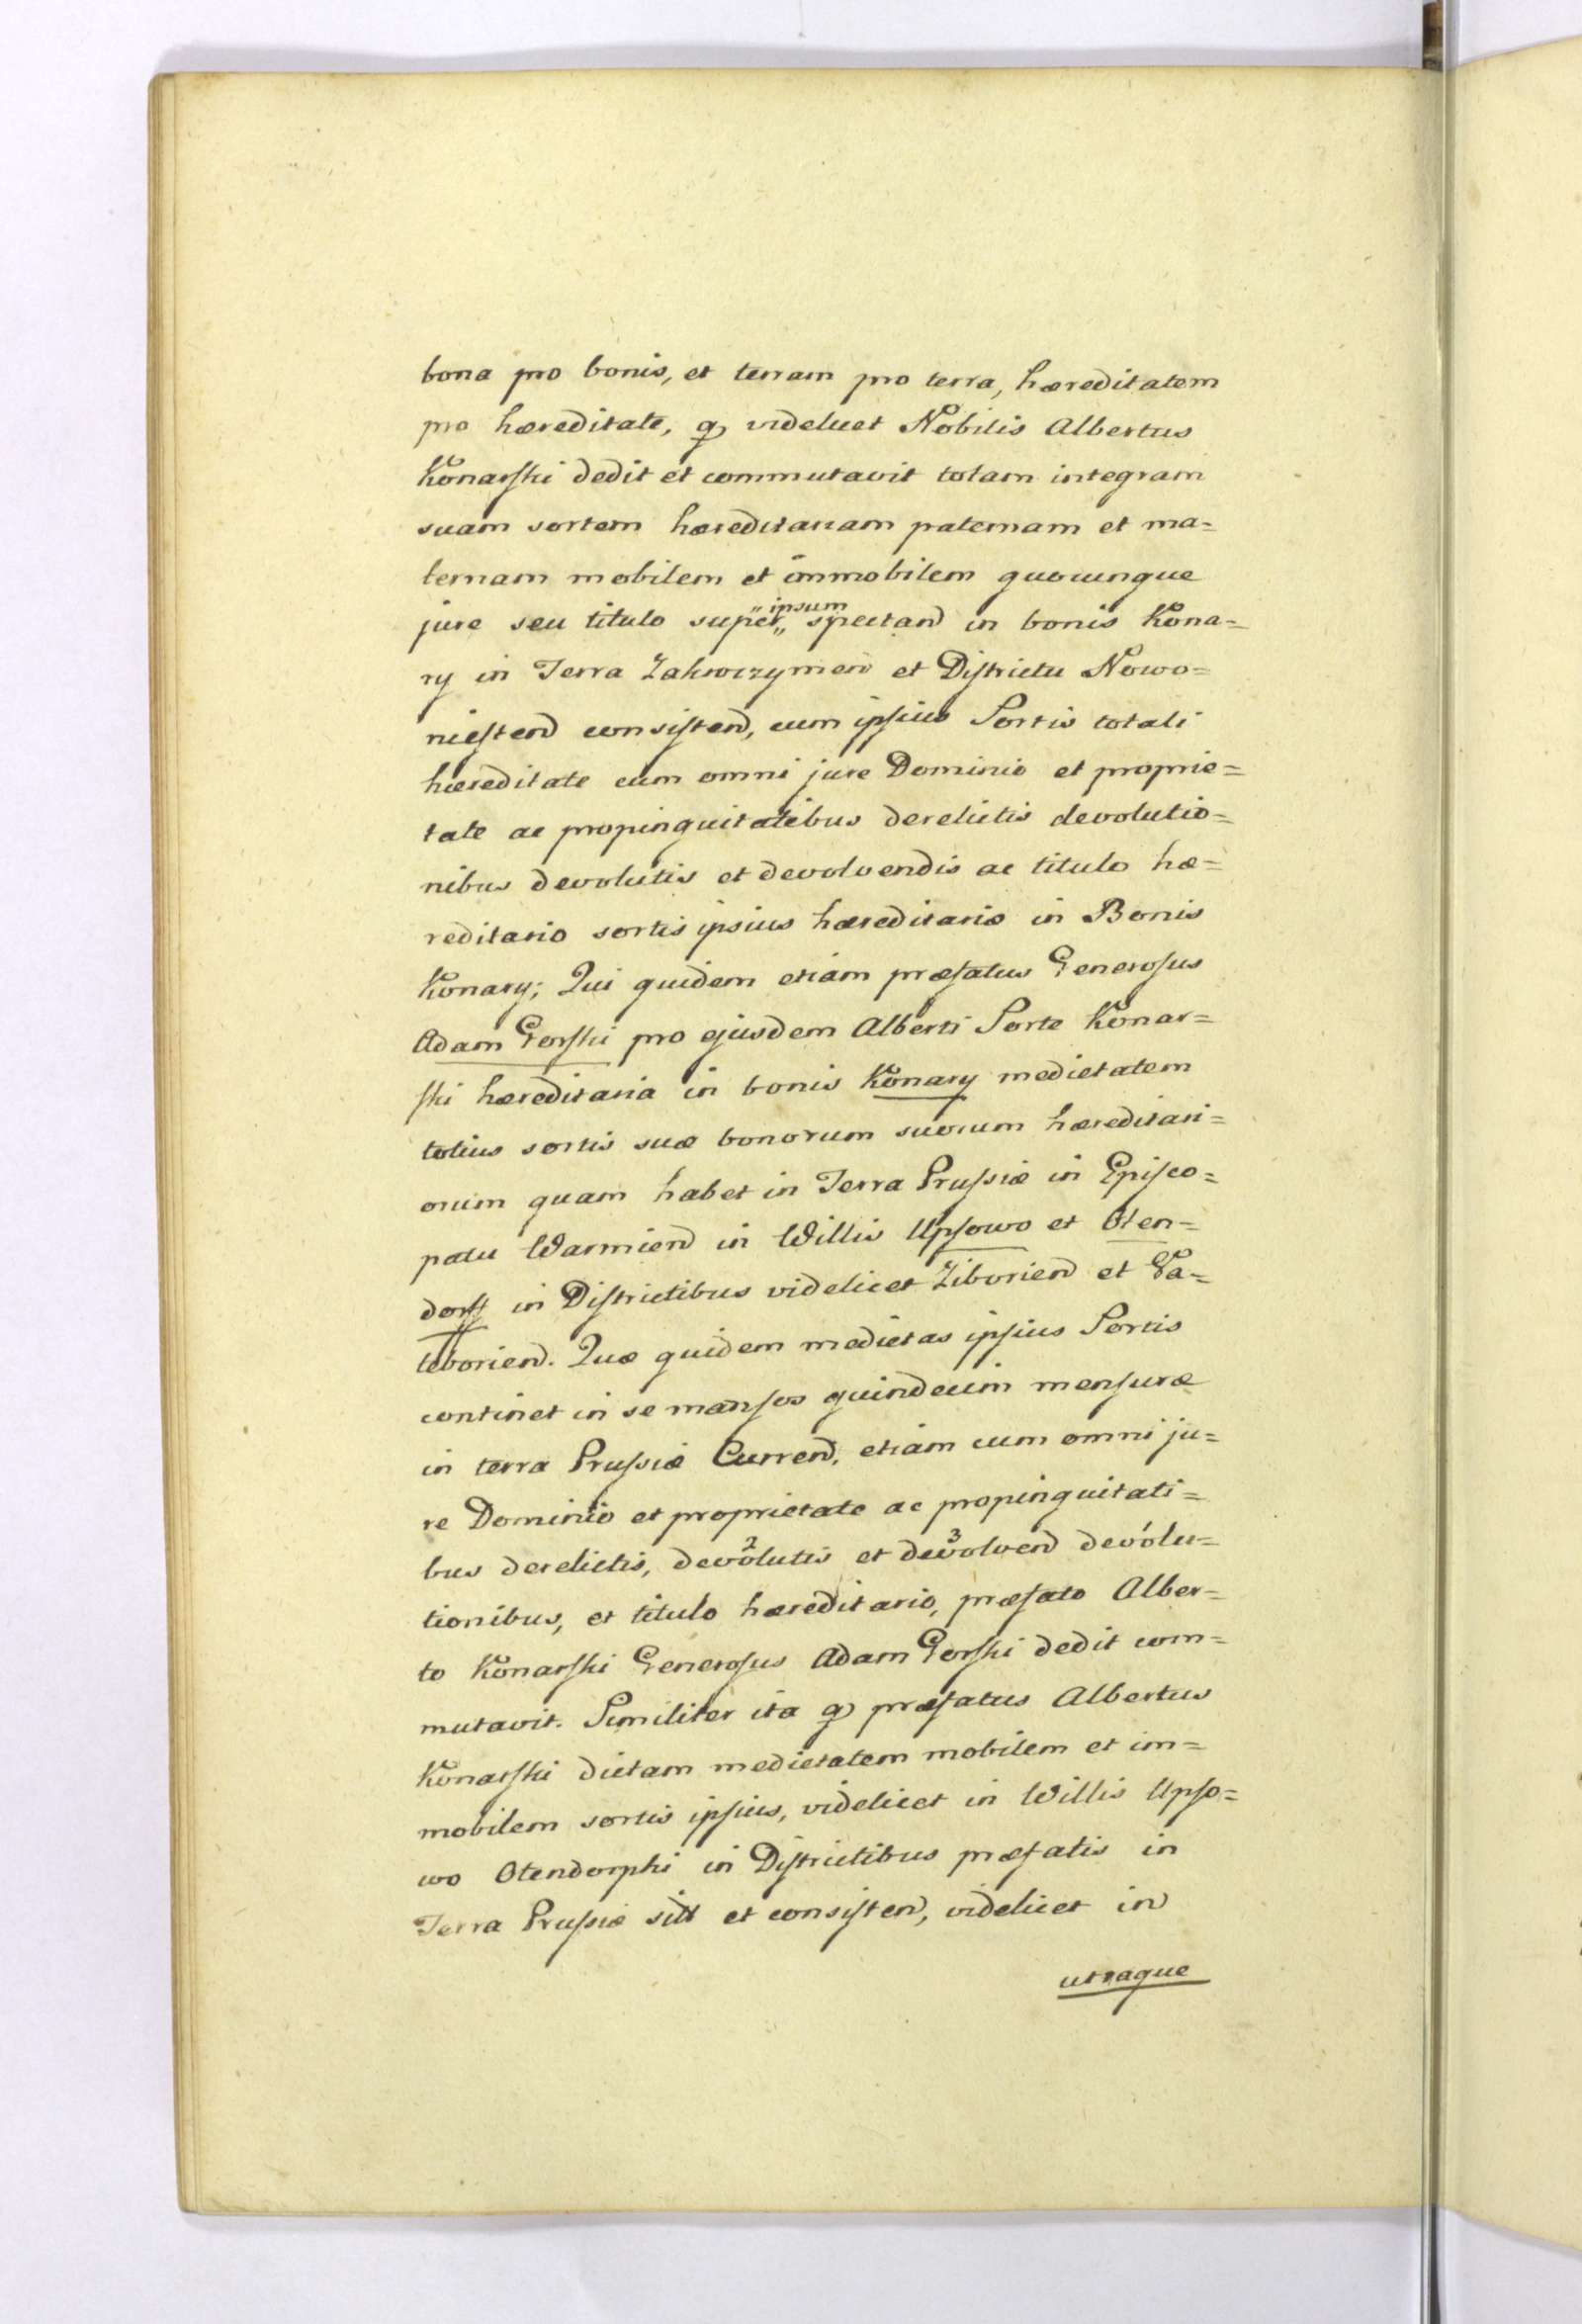 bona pro bonis, et terram pro terra, hæreditatem
pro hæreditate, q videlicet Nobilis Albertus
Konarski dedit et commutavit totam integram
suam sortem hæreditariam paternam et ma=
ternam mobilem et immobilem quocunque
jure seu titulo super „ipsum„ spectand in bonis Kona=
ry in Terra Zakroczymen et Districtu Nowo=
miesten consisten, cum ipsius Sortis totali
hæreditate cum omni jure Dominio et proprie=
tate ac propinquitatibus derelictis devolutio=
nibus devolutis et devolvendis ac titulo hæ=
reditario sortis ipsius hæreditariæ in Bonis
Konary; Qui quidem etiam præfatus Generosus
Adam Gorski pro ejusdem Alberti Sorte Konar=
ski hæreditaria in bonis Konary medietatem
totius sortis suæ bonorum suorum hæreditari=
orum quam habet in Terra Prussiæ in Episco=
patu Warmien in Willis Upsowo et Oten=
dorff in Districtibus videlicet Ziborien et Ta=
teborien. Quæ quidem medietas ipsius Sortis
continet in se mansos quindecim mensuræ
in terra Prussiæ Curren, etiam cum omni ju=
re Dominio et proprietate ac propinquitati=
bus derelictis, devo²lutis et dev³olven devolu=
tionibus, et titulo hæreditario, præfato Alber=
to Konarski Generosus Adam Gorski dedit com=
mutavit. Similiter ita q præfatus Albertus
Konarski dictam medietatem mobilem et im=
mobilem sortis ipsius, videlicet in Willis Upso=
wo Otendorphi in Districtibus præfatis in
Terra Prussiæ sitt et consisten, videlicet in
utraque